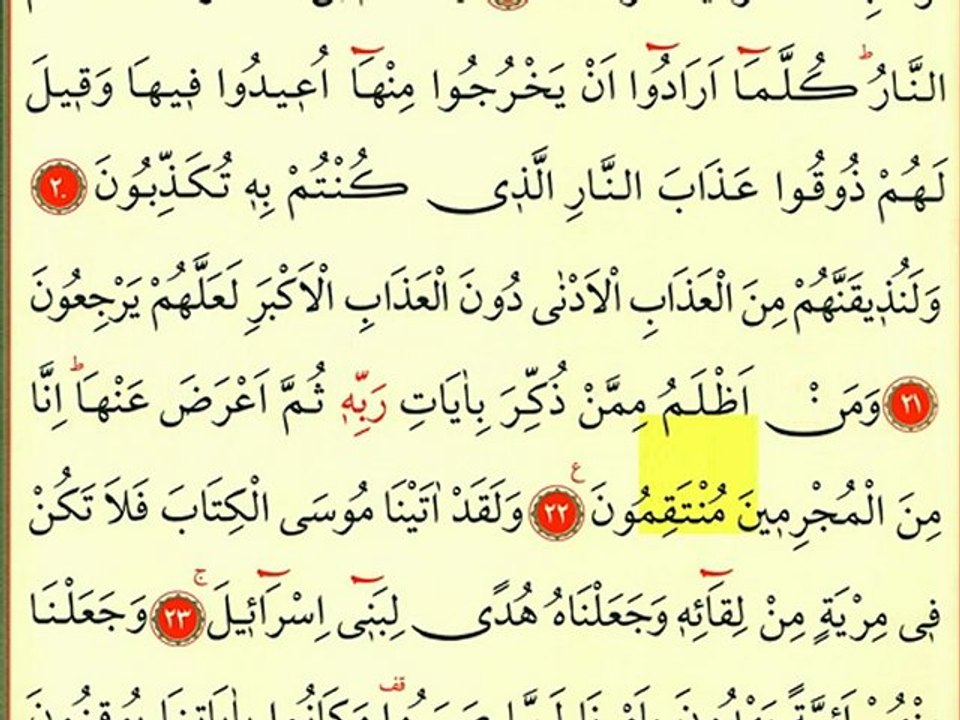 النَّارُ ط كُلَّمَٓا اَرَادُٓوا اَنْ يَخْرُجُوا مِنْهَٓا اُع۪يدُوا ف۪يهَا وَق۪يلَ
لَهُمْ ذُوقُوا عَذَابَ النَّارِ الَّذ۪ى كُنْتُمْ بِه۪ تُكَذِّبُونَ ٢٠
وَلَنُذ۪يقَنَّهُمْ مِنَ الْعَذَابِ الْاَدْنٰى دُونَ الْعَذَابِ الْاَكْبَرِ لَعَلَّهُمْ يَرْجِعُونَ
٢١ وَمَنْ اَظْلَمُ مِمَّنْ ذُكِّرَ بِاٰيَاتِ رَبِّه۪ ثُمَّ اَعْرَضَ عَنْهَا ط اِنَّا
مِنَ الْمُجْرِم۪ينَ مُنْتَقِمُونَ ع ٢٢ وَلَقَدْ اٰتَيْنَا مُوسَى الْكِتَابَ فَلَا تَكُنْ
ف۪ى مِرْيَةٍ مِنْ لِقَٓائِه۪ وَجَعَلْنَاهُ هُدًى لِبَن۪ٓى اِسْرَٓائ۪يلَ ج ٢٣ وَجَعَلْنَا